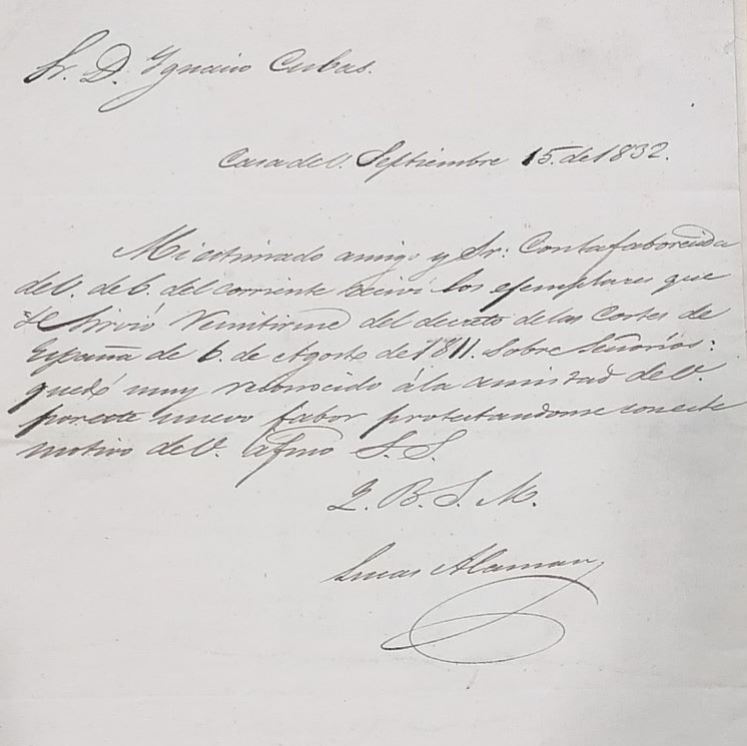 Sr. D. Ygnacio Cubas.
Casa de V. Septiembre 15. de 1832.
Mi estimado amigo y Sr: Con la faborecida
de V. de 6. del corriente recivi los ejemplares que
se sirvió remitirme del decreto de las Cortes de
España de 6. de Agosto de 1811. sobre Señoríos:
quedó muy reconocido á la amistad de V.
por este nuevo fabor protestandome con este
motivo de V. afmo S. S.
Q. B. S. M.
Lucas Alaman